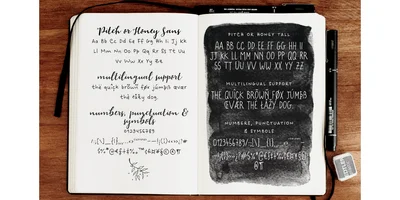 Pitch or Honey Sans
Aa Bb Cc Dd Ee Ff Gg Hh Ii Jj Kk
Ll Mm Nn Oo Pp Qq Rr Ss Tt Uu
Vv Ww Xx Yy Zz
multilingual support
thé quïçk bröwñ føx júmþß œvær
thé łåžy dog.
numbers, punctuation &
symbols
0123456789
PITCH OR HONEY TALL
AA BB CC DD EE FF GG HH II
JJ KK LL MM NN OO PP QQ RR
SS TT UU VV WW XX YY ZZ
MULTILINGUAL SUPPORT
THÉ QUÏÇK BRÖWÑ FØX JÚMÞß
ŒVÆR THÉ ŁÅŽY DOG.
NUMBERS, PUNCTUATION
& SYMBOLS